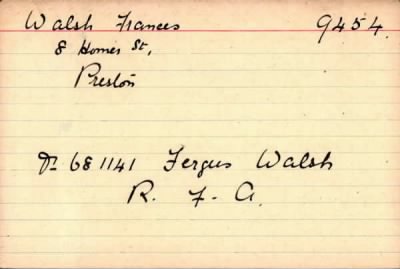 Walsh Frances 9454.
8 Homer St,
Preston
Dr 681141 Fergus Walsh
R. F. A.